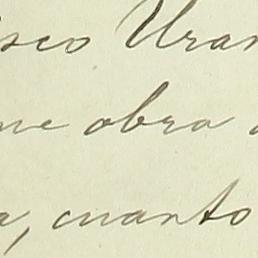 isco Uran
me obra a
a, cuanto